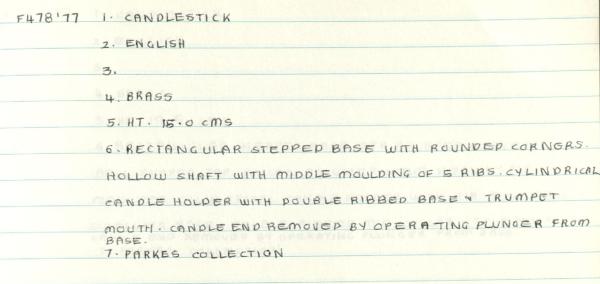 F478'77 1. CANDLESTICK
2. ENGLISH
3.
4. BRASS
5. HT. 15.0 CMS
6. RECTANGULAR STEPPED BASE WITH ROUNDED CORNERS.
HOLLOW SHAFT WITH MIDDLE MOULDING OF 5 RIBS. CYLINDRICAL
CANDLE HOLDER WITH DOUBLE RIBBED BASE & TRUMPET
MOUTH. CANDLE END REMOVED BY OPERATING PLUNGER FROM
BASE.
7. PARKES COLLECTION